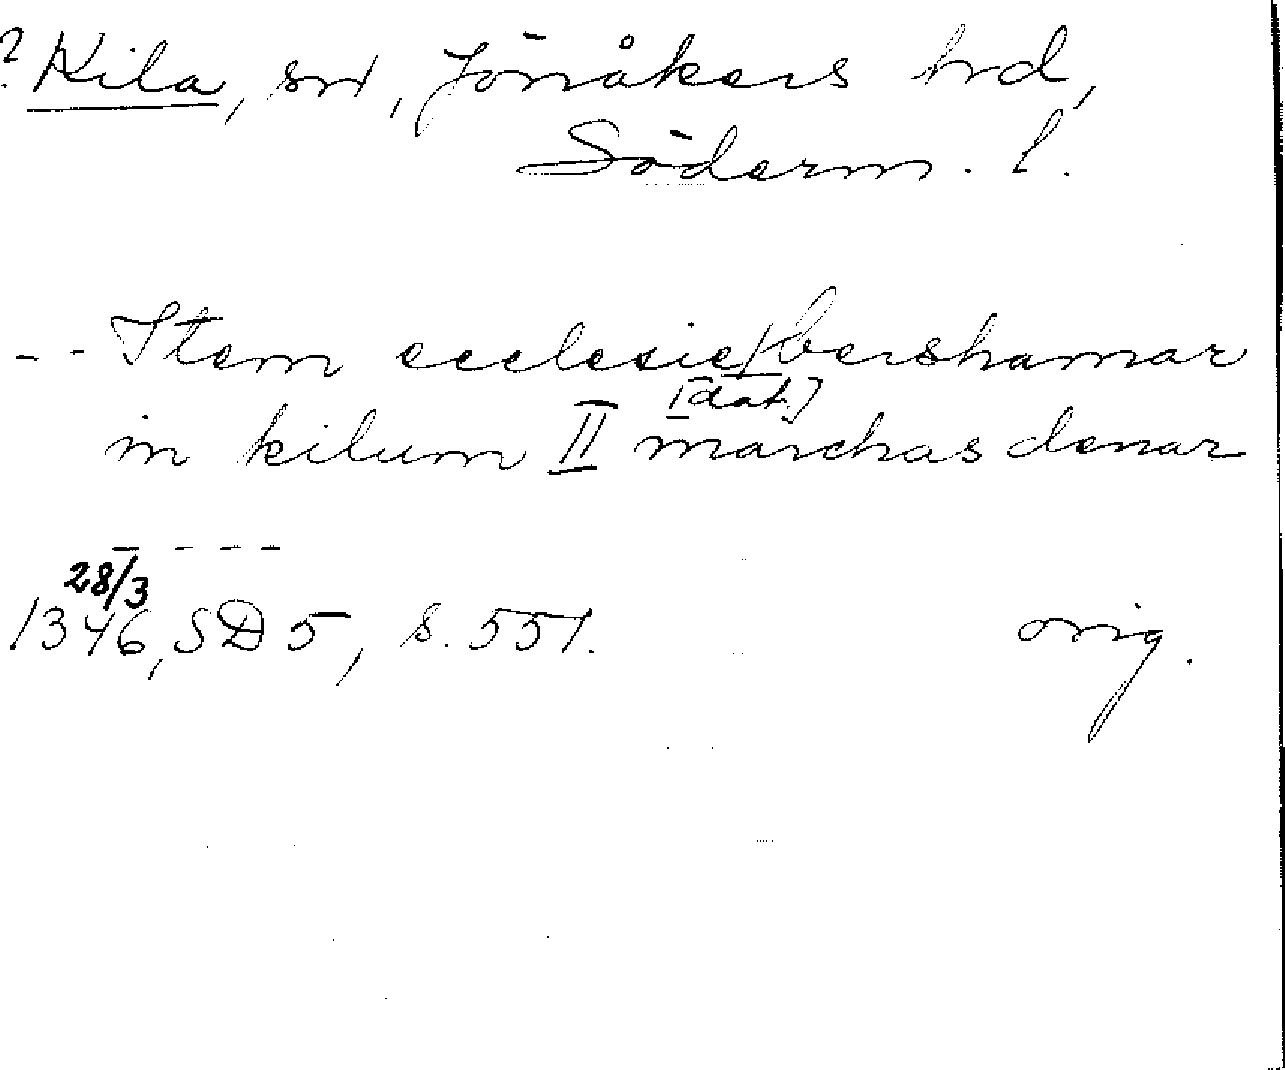 ? Kila, sn, Jönåkers hrd,
Söderm. l.
- - Item ecclesie / bershamar
[dat.]
in kilum II marchas denar
- - - -
28/3
1346, SD 5, s. 551. orig.